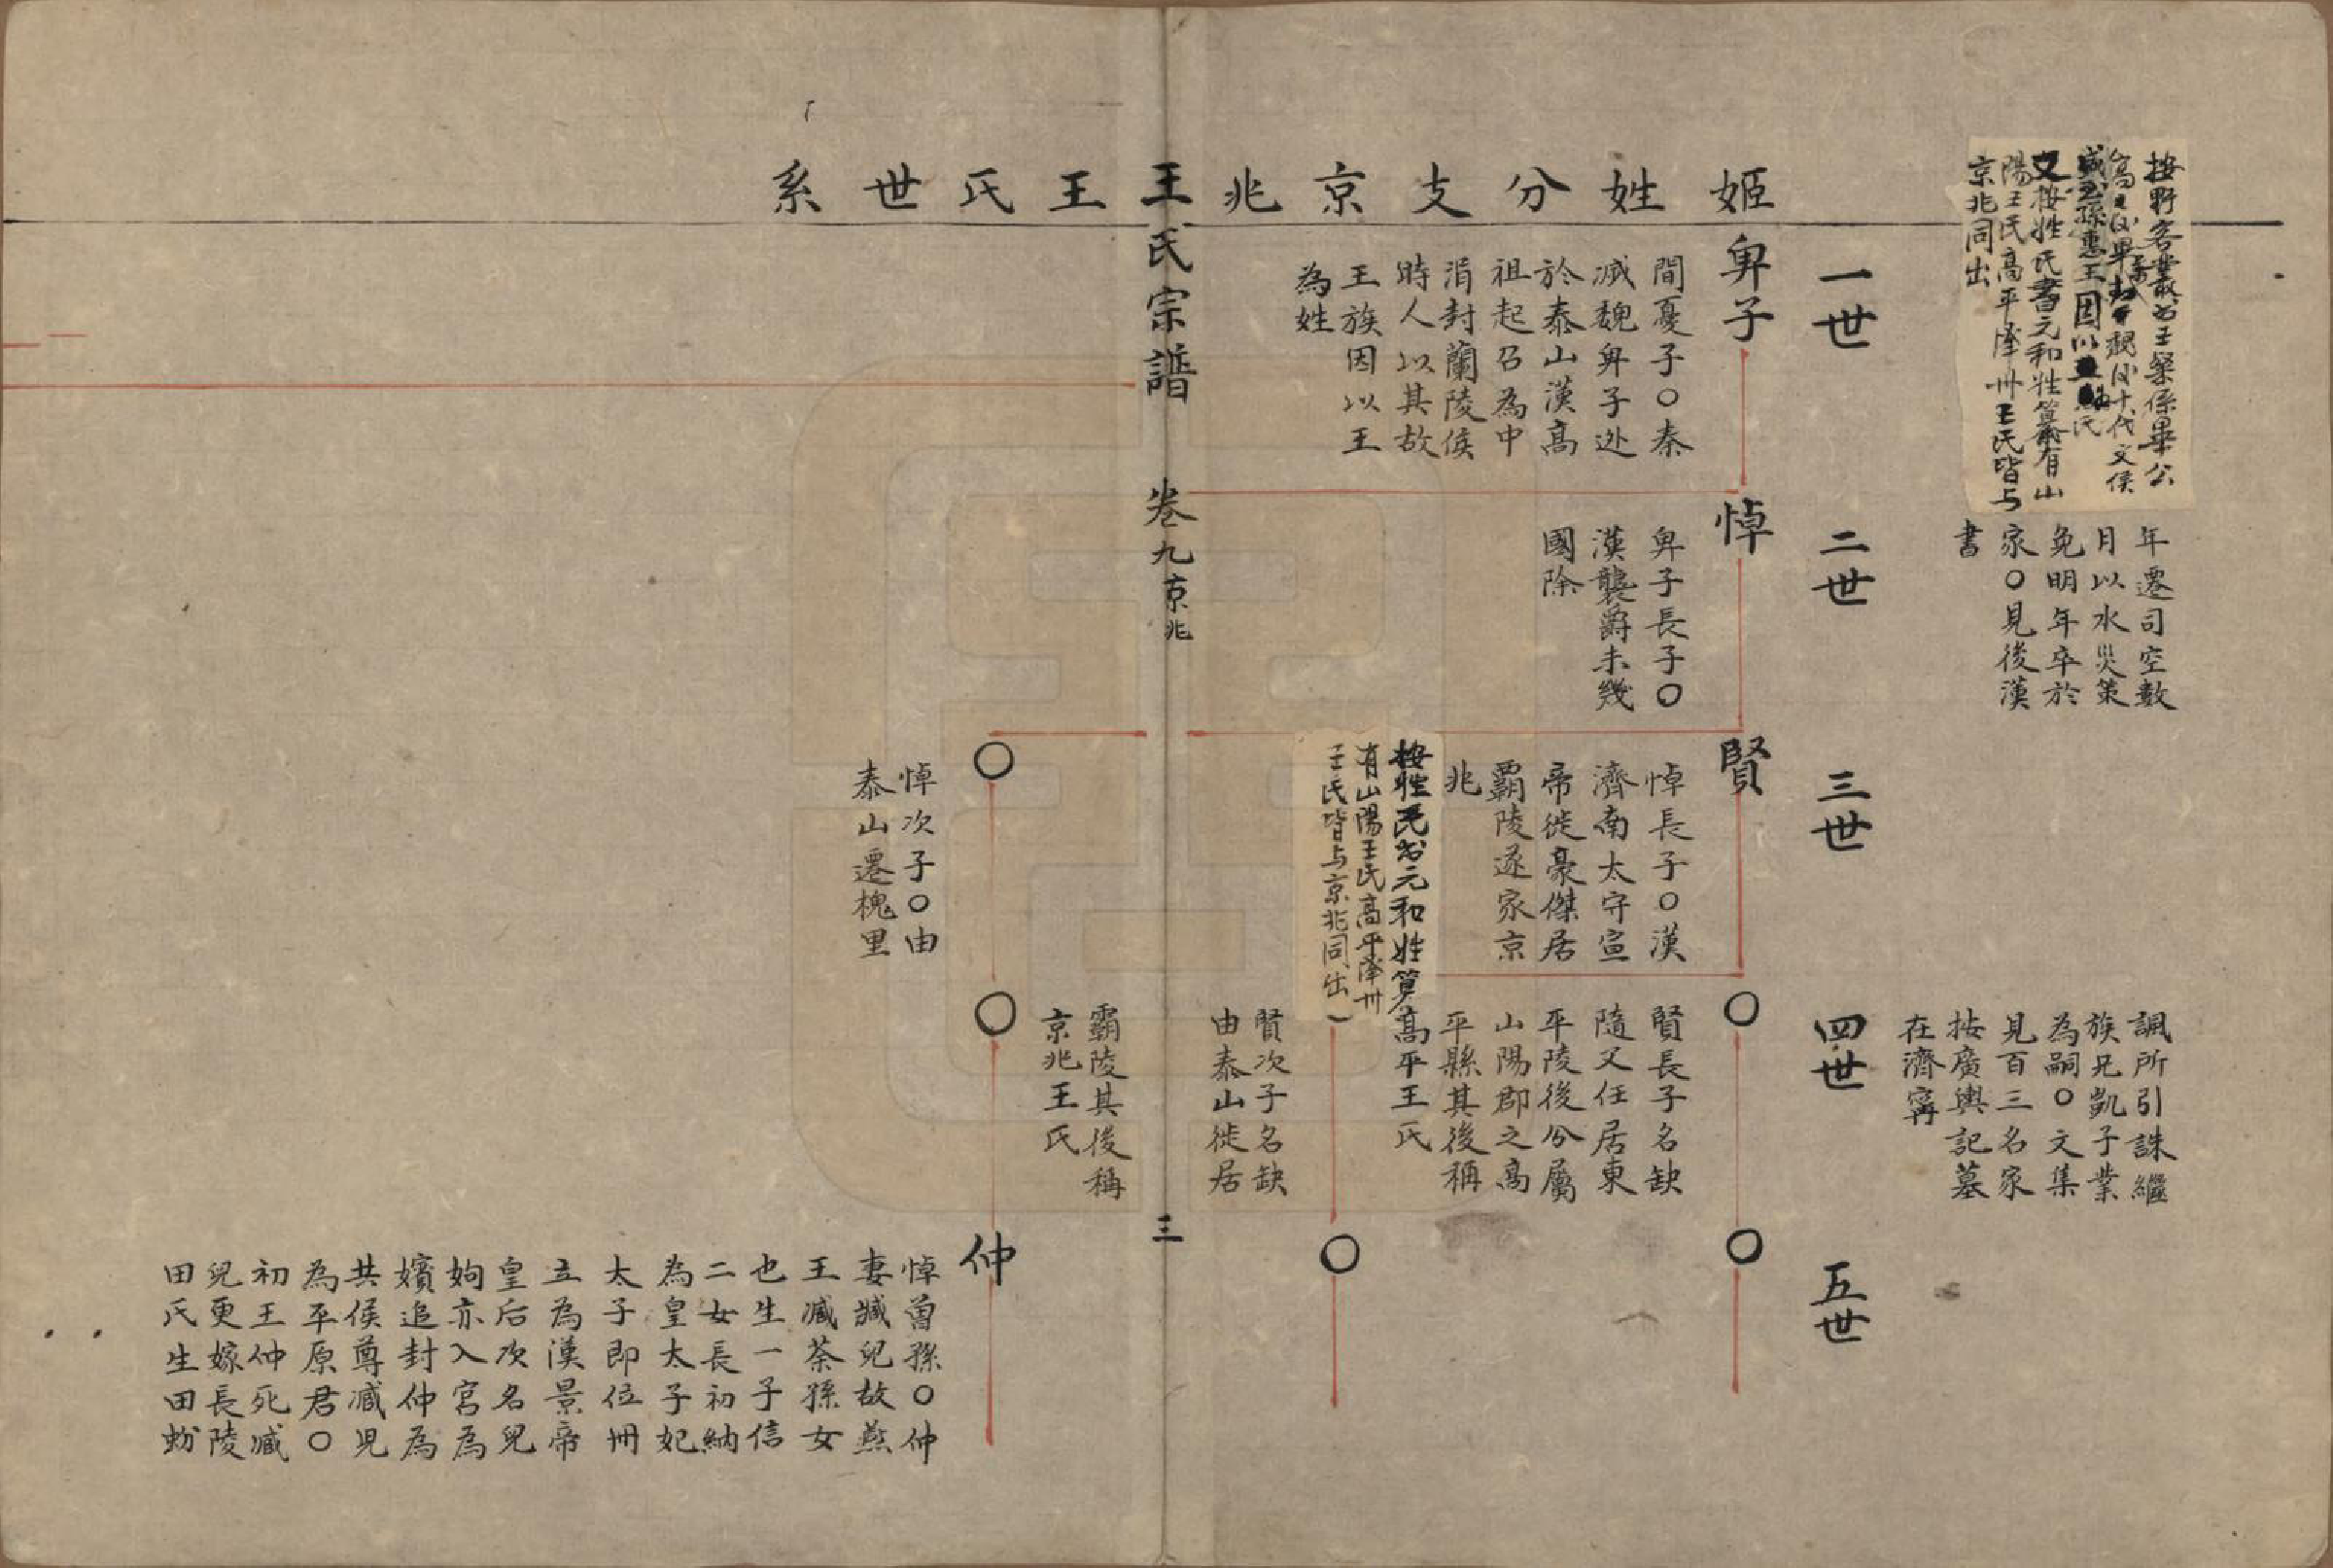 姬姓分支京兆王王氏世系
王氏宗譜 卷九 京兆
三
按野客叢書王粲係畢公
高之後畢封于魏後十代文侯
盛至孫惠王因以王為氏
又按姓氏書元和姓纂有山
陽王氏高平澤州王氏皆与
京兆同出
年遷司空數
月以水災策
免明年卒於
家〇見後漢
書
諷所引誅繼
族兄凱子業
為嗣〇文集
見百三名家
按廣輿記墓
在濟寧
一世
二世
三世
四世
五世
卑子
間憂子〇秦
滅魏卑子迯
於泰山漢高
祖起召為中
涓封蘭陵侯
時人以其故
王族因以王
為姓
悼
卑子長子〇
漢襲爵未幾
國除
賢
悼長子〇漢
濟南太守宣
帝徙豪傑居
霸陵遂家京
兆
按姓氏書元和姓纂
有山陽王氏高平澤州
王氏皆与京兆同出
〇
悼次子〇由
泰山遷槐里
〇
賢長子名缺
隨又任居東
平陵後分屬
山陽郡之高
平縣其後稱
高平王氏
賢次子名缺
由泰山徙居
霸陵其後稱
京兆王氏
〇
〇
〇
仲
悼曾孫〇仲
妻臧兒故燕
王臧荼孫女
也生一子信
二女長初納
為皇太子妃
太子即位冊
立為漢景帝
皇后次名兒
姁亦入宮為
嬪追封仲為
共侯尊臧兒
為平原君〇
初王仲死臧
兒更嫁長陵
田氏生田蚡